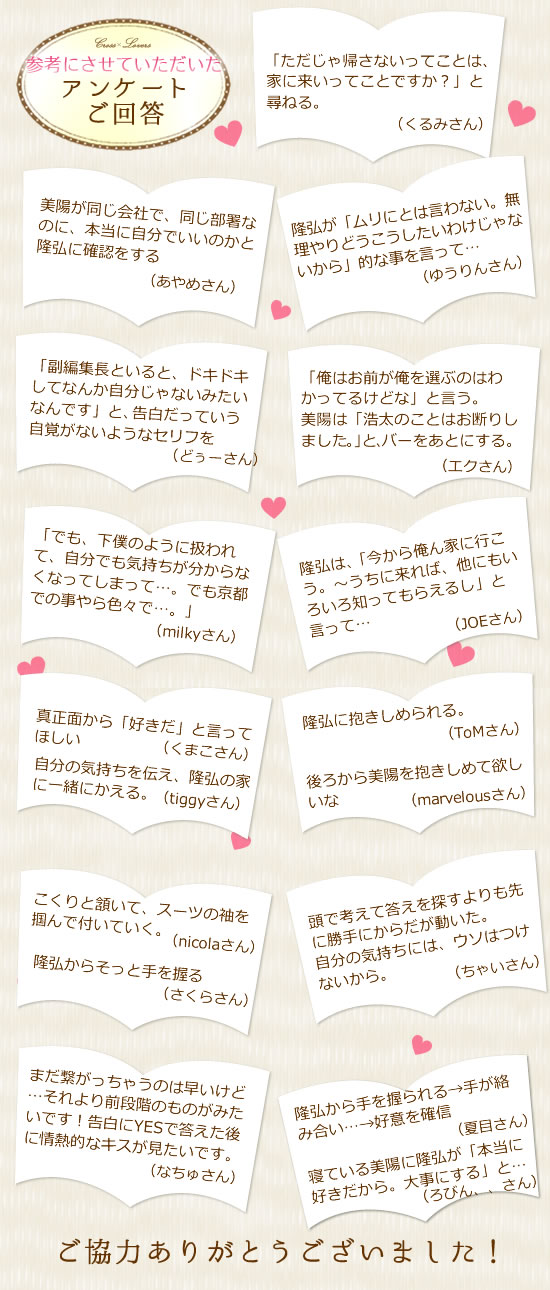 Cross×Lovers
参考にさせていただいた
アンケート
ご回答
「ただじゃ帰さないってことは、
家に来いってことですか？」と
尋ねる。
（くるみさん）
美陽が同じ会社で、同じ部署な
のに、本当に自分でいいのかと
隆弘に確認をする
（あやめさん）
隆弘が「ムリにとは言わない。無
理やりどうこうしたいわけじゃな
いから」的な事を言って…
（ゆうりんさん）
「副編集長といると、ドキドキ
してなんか自分じゃないみたい
なんです」と、告白だっていう
自覚がないようなセリフを
（どぅーさん）
「俺はお前が俺を選ぶのはわ
かってるけどな」と言う。
美陽は「浩太のことはお断りし
ました。」と、バーをあとにする。
（エクさん）
「でも、下僕のように扱われ
て、自分でも気持ちが分からな
くなってしまって…。でも京都
での事やら色々で…。」
（milkyさん）
隆弘は、「今から俺ん家に行こ
う。～うちに来れば、他にもい
ろいろ知ってもらえるし」と
言って…
（JOEさん）
真正面から「好きだ」と言って
ほしい
（くまこさん）
自分の気持ちを伝え、隆弘の家
に一緒にかえる。（tiggyさん）
隆弘に抱きしめられる。
（ToMさん）
後ろから美陽を抱きしめて欲し
いな
（marvelousさん）
こくりと頷いて、スーツの袖を
掴んで付いていく。
（nicolaさん）
隆弘からそっと手を握る
（さくらさん）
頭で考えて答えを探すよりも先
に勝手にからだが動いた。
自分の気持ちには、ウソはつけ
ないから。
（ちゃいさん）
まだ繋がっちゃうのは早いけど
…それより前段階のものがみた
いです！告白にYESで答えた後
に情熱的なキスが見たいです。
（なちゅさん）
隆弘から手を握られる→手が絡
み合い…→好意を確信
（夏目さん）
寝ている美陽に隆弘が「本当に
好きだから。大事にする」と…
（ろびん、、さん）
ご協力ありがとうございました！